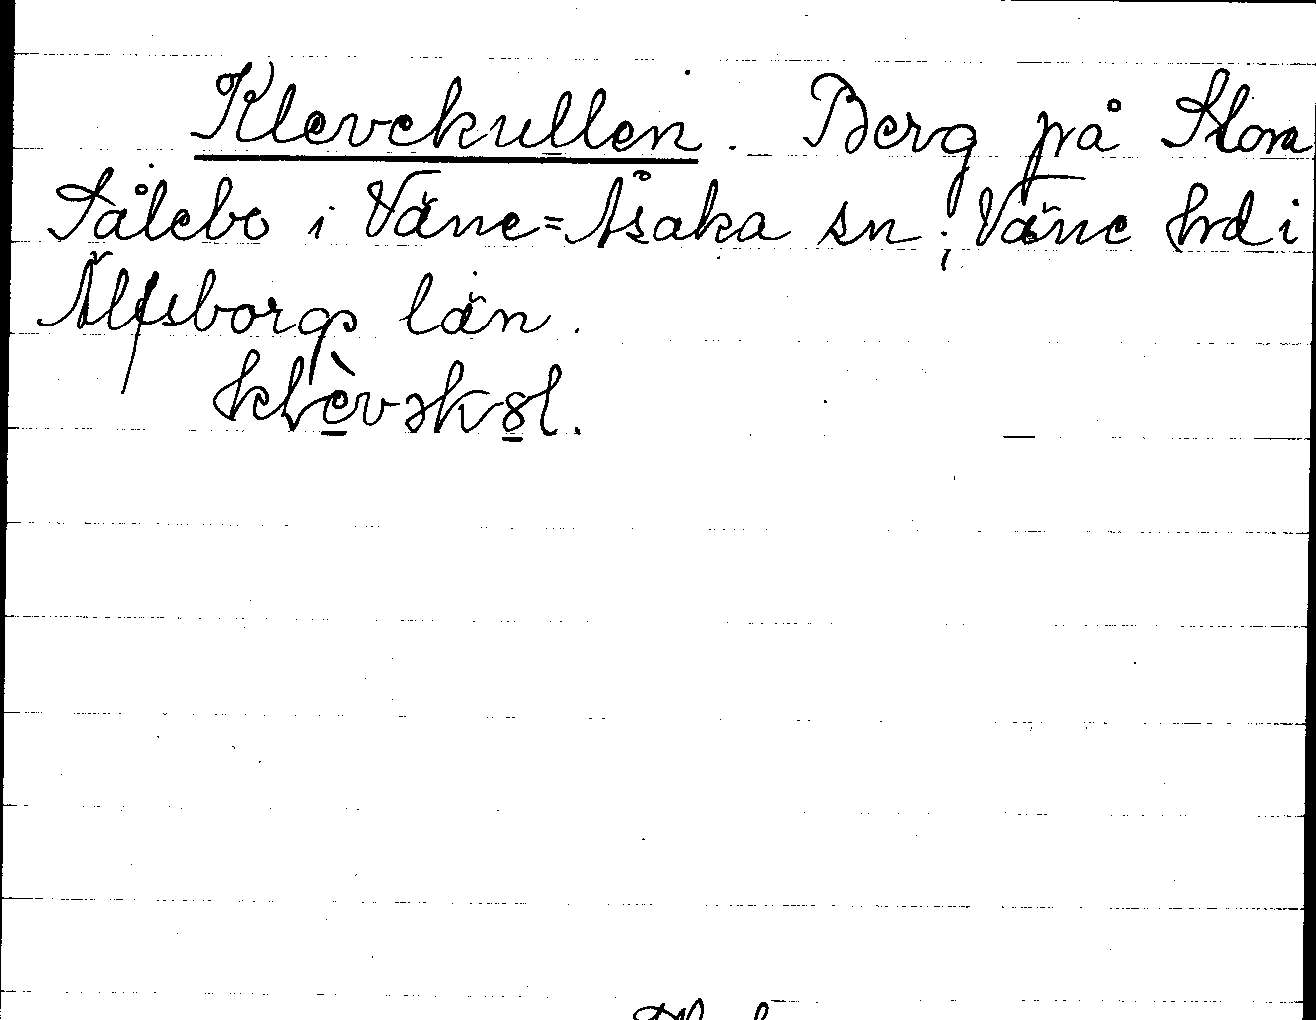 Klevekullen. Berg på Stora
Sålebo i Väne=Åsaka sn i Väne hrd i
Älfsborgs län.
klèvəkȣl.